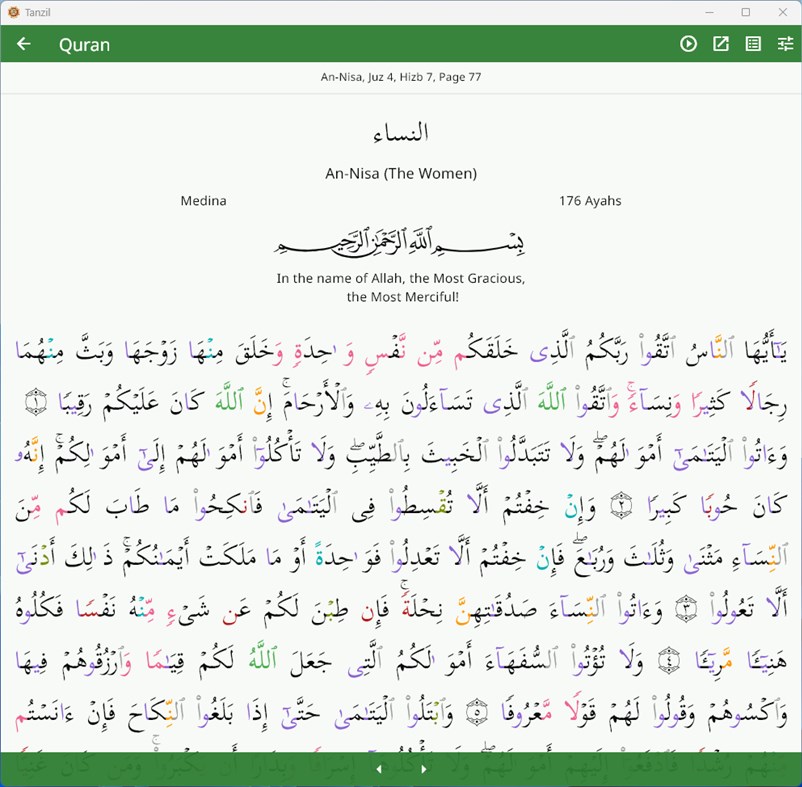 Tanzil
Quran
An-Nisa, Juz 4, Hizb 7, Page 77
النساء
An-Nisa (The Women)
Medina 176 Ayahs
بِسْمِ اللَّهِ الرَّحْمَٰنِ الرَّحِيمِ
In the name of Allah, the Most Gracious,
the Most Merciful!
يَـٰٓأَيُّهَا ٱلنَّاسُ ٱتَّقُوا۟ رَبَّكُمُ ٱلَّذِى خَلَقَكُم مِّن نَّفْسٍ وَٰحِدَةٍ وَخَلَقَ مِنْهَا زَوْجَهَا وَبَثَّ مِنْهُمَا
رِجَالًا كَثِيرًا وَنِسَآءً ۚ وَٱتَّقُوا۟ ٱللَّهَ ٱلَّذِى تَسَآءَلُونَ بِهِۦ وَٱلْأَرْحَامَ ۚ إِنَّ ٱللَّهَ كَانَ عَلَيْكُمْ رَقِيبًا ۝١
وَءَاتُوا۟ ٱلْيَتَـٰمَىٰٓ أَمْوَٰلَهُمْ ۖ وَلَا تَتَبَدَّلُوا۟ ٱلْخَبِيثَ بِٱلطَّيِّبِ ۖ وَلَا تَأْكُلُوٓا۟ أَمْوَٰلَهُمْ إِلَىٰٓ أَمْوَٰلِكُمْ ۚ إِنَّهُۥ
كَانَ حُوبًا كَبِيرًا ۝٢ وَإِنْ خِفْتُمْ أَلَّا تُقْسِطُوا۟ فِى ٱلْيَتَـٰمَىٰ فَٱنكِحُوا۟ مَا طَابَ لَكُم مِّنَ
ٱلنِّسَآءِ مَثْنَىٰ وَثُلَـٰثَ وَرُبَـٰعَ ۖ فَإِنْ خِفْتُمْ أَلَّا تَعْدِلُوا۟ فَوَٰحِدَةً أَوْ مَا مَلَكَتْ أَيْمَـٰنُكُمْ ۚ ذَٰلِكَ أَدْنَىٰٓ
أَلَّا تَعُولُوا۟ ۝٣ وَءَاتُوا۟ ٱلنِّسَآءَ صَدُقَـٰتِهِنَّ نِحْلَةً ۚ فَإِن طِبْنَ لَكُمْ عَن شَىْءٍ مِّنْهُ نَفْسًا فَكُلُوهُ
هَنِيٓـًٔا مَّرِيٓـًٔا ۝٤ وَلَا تُؤْتُوا۟ ٱلسُّفَهَآءَ أَمْوَٰلَكُمُ ٱلَّتِى جَعَلَ ٱللَّهُ لَكُمْ قِيَـٰمًا وَٱرْزُقُوهُمْ فِيهَا
وَٱكْسُوهُمْ وَقُولُوا۟ لَهُمْ قَوْلًا مَّعْرُوفًا ۝٥ وَٱبْتَلُوا۟ ٱلْيَتَـٰمَىٰ حَتَّىٰٓ إِذَا بَلَغُوا۟ ٱلنِّكَاحَ فَإِنْ ءَانَسْتُم